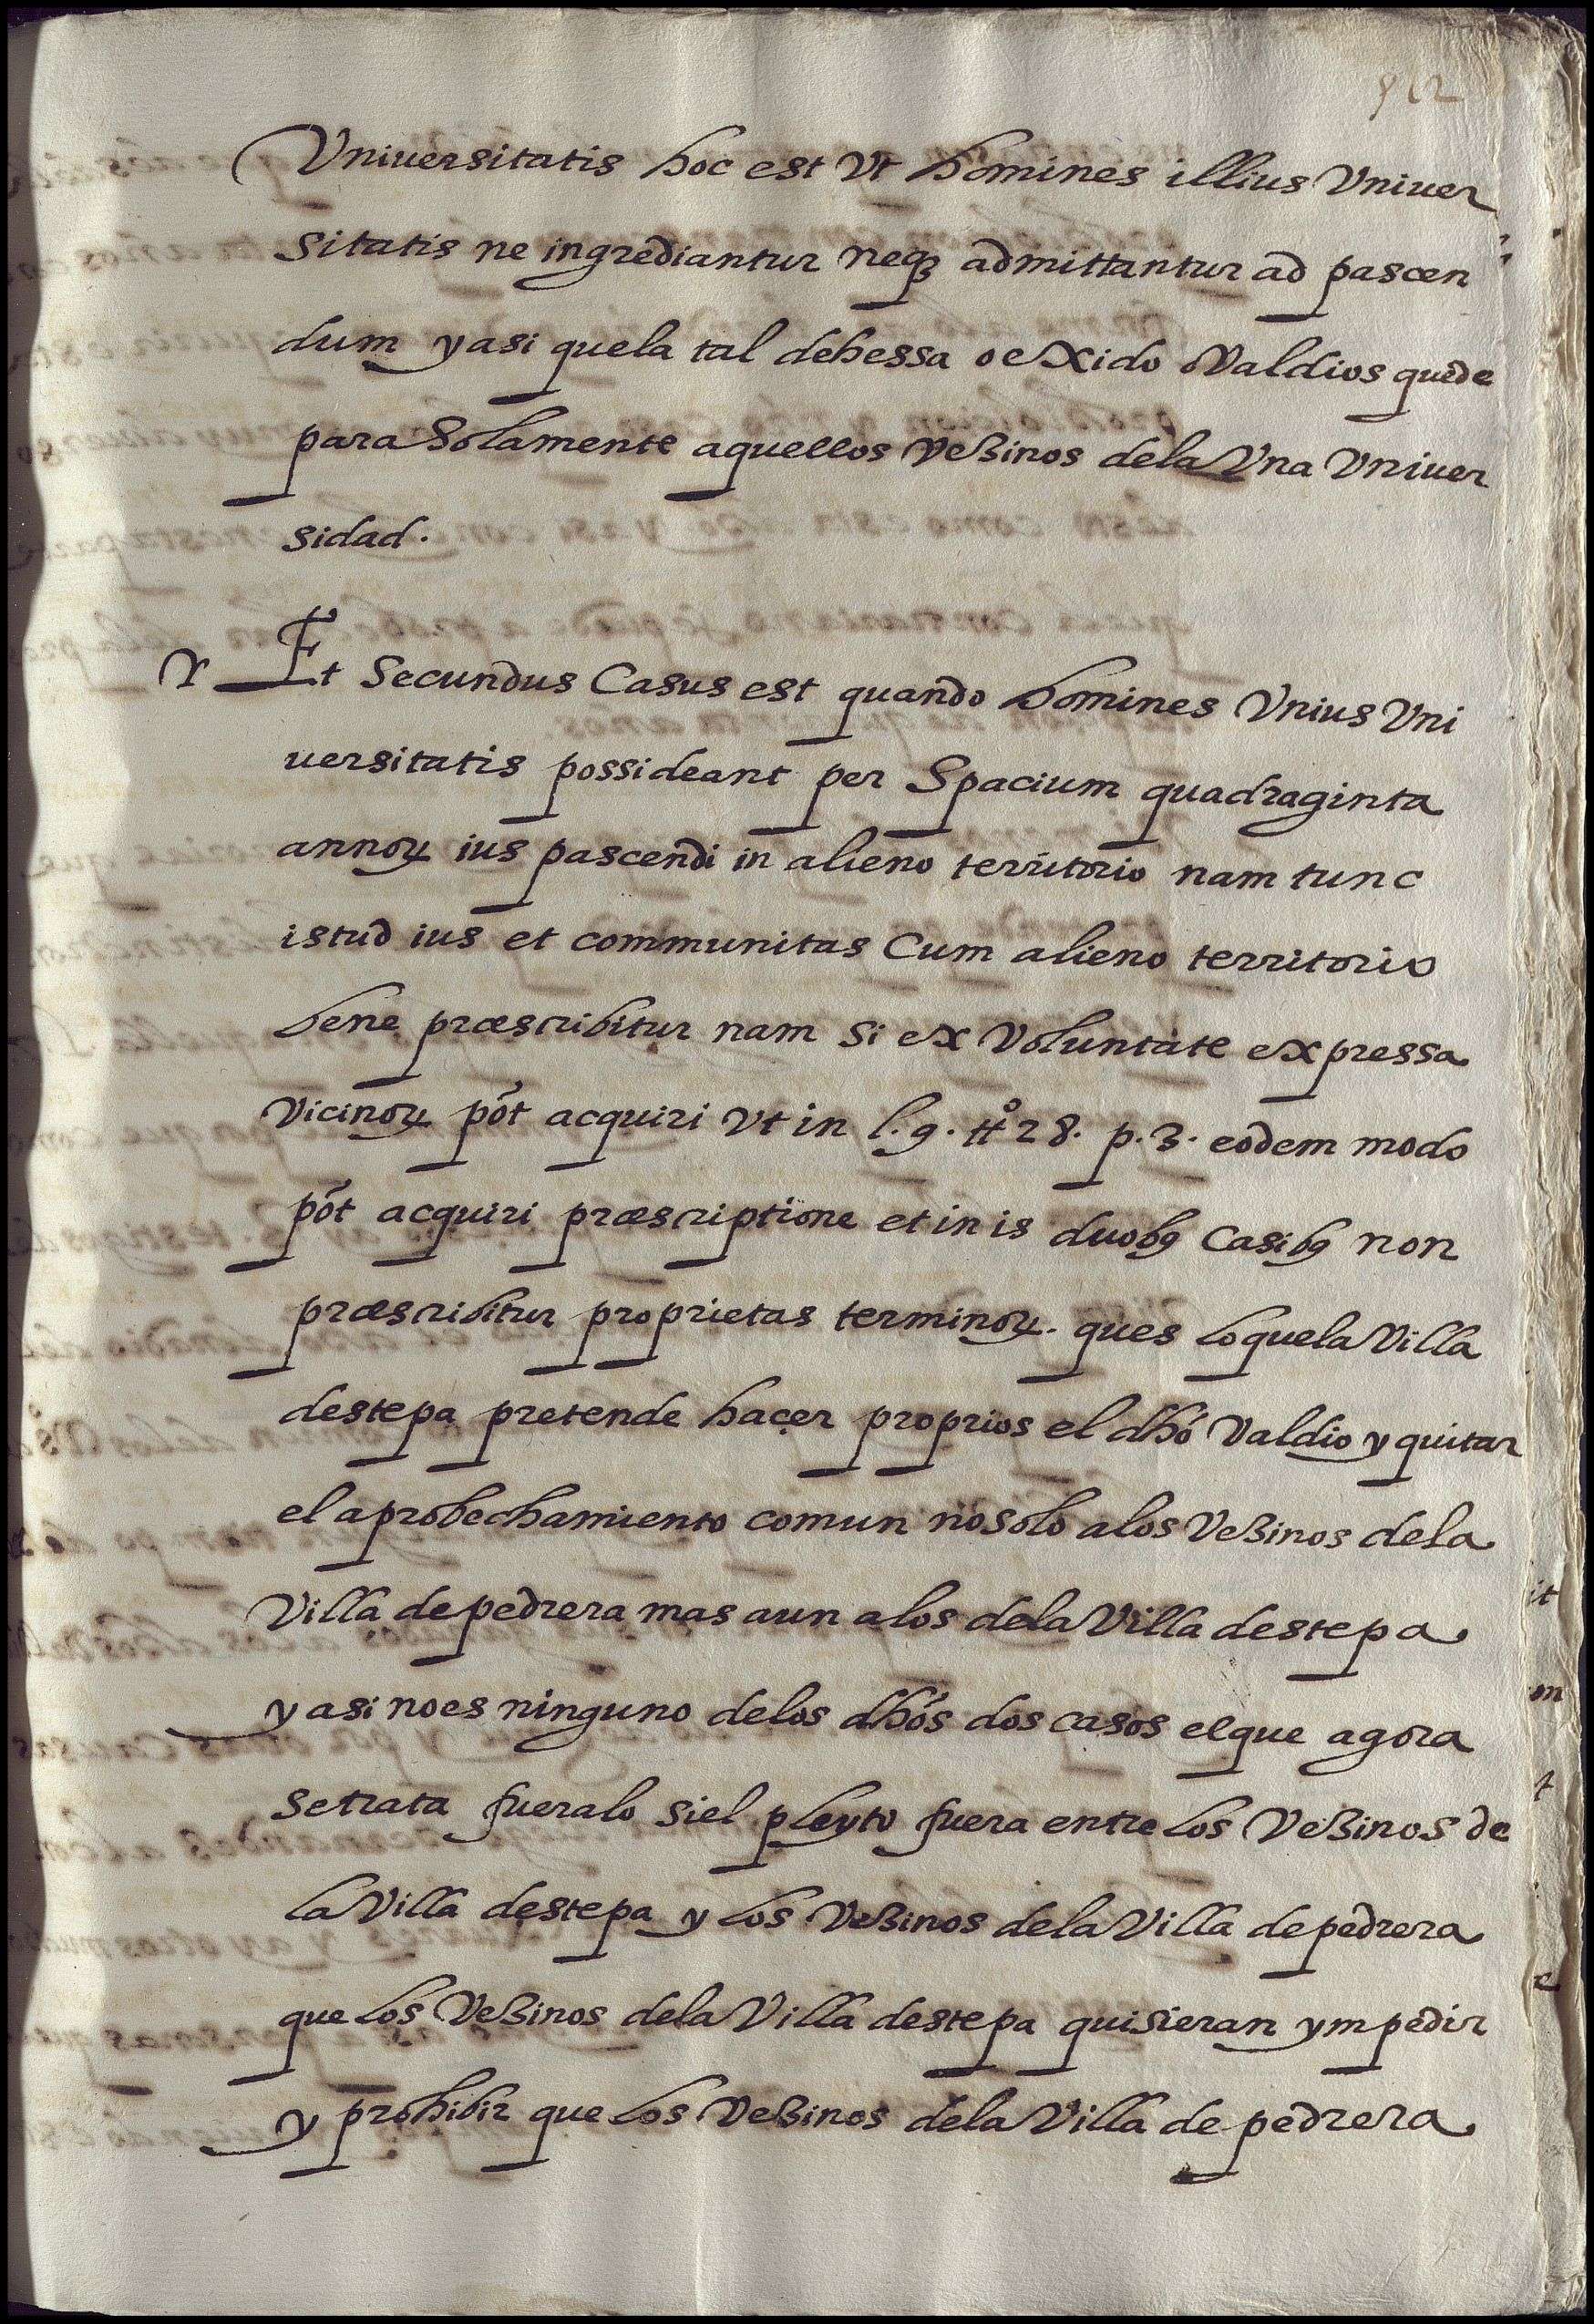 Vniuersitatis hoc est Vt homines illius Vniuer
sitatis ne ingrediantur neqꝫ admittantur ad pascen
dum y asi quela tal dehessa o eXido oValdios quede
para Solamente aquellos Veßinos dela Vna Vniuer
sidad.
Y Et Secundus Casus est quando homines Vnius Vni
uersitatis possideant per Spacium quadraginta
annoꝝ ius pascendi in alieno territorio nam tunc
istud ius et communitas Cum alieno territorio
bene præscribitur nam si ex Voluntate expressa
Vicinoꝝ põt acquiri Vt in l. 9. ttº 28. p. 3. eodem modo
põt acquiri præscriptione et in is duobꝰ Casibꝰ non
præscribitur proprietas terminoꝝ. ques loquela Villa
destepa pretende haçer proprios el dhó Valdio y quitar
el aprobechamiento comun nosolo alos Veßinos dela
Villa depedrera mas aun alos dela Villa destepa
y asi noes ninguno delos dhós dos casos elque agora
setrata fueralo siel pleyto fuera entre los Veßinos de
la Villa destepa y los Veßinos dela Villa depedrera
que los Veßinos dela Villa destepa quisieran ympedir
y prohibir que los Veßinos dela Villa de pedrera